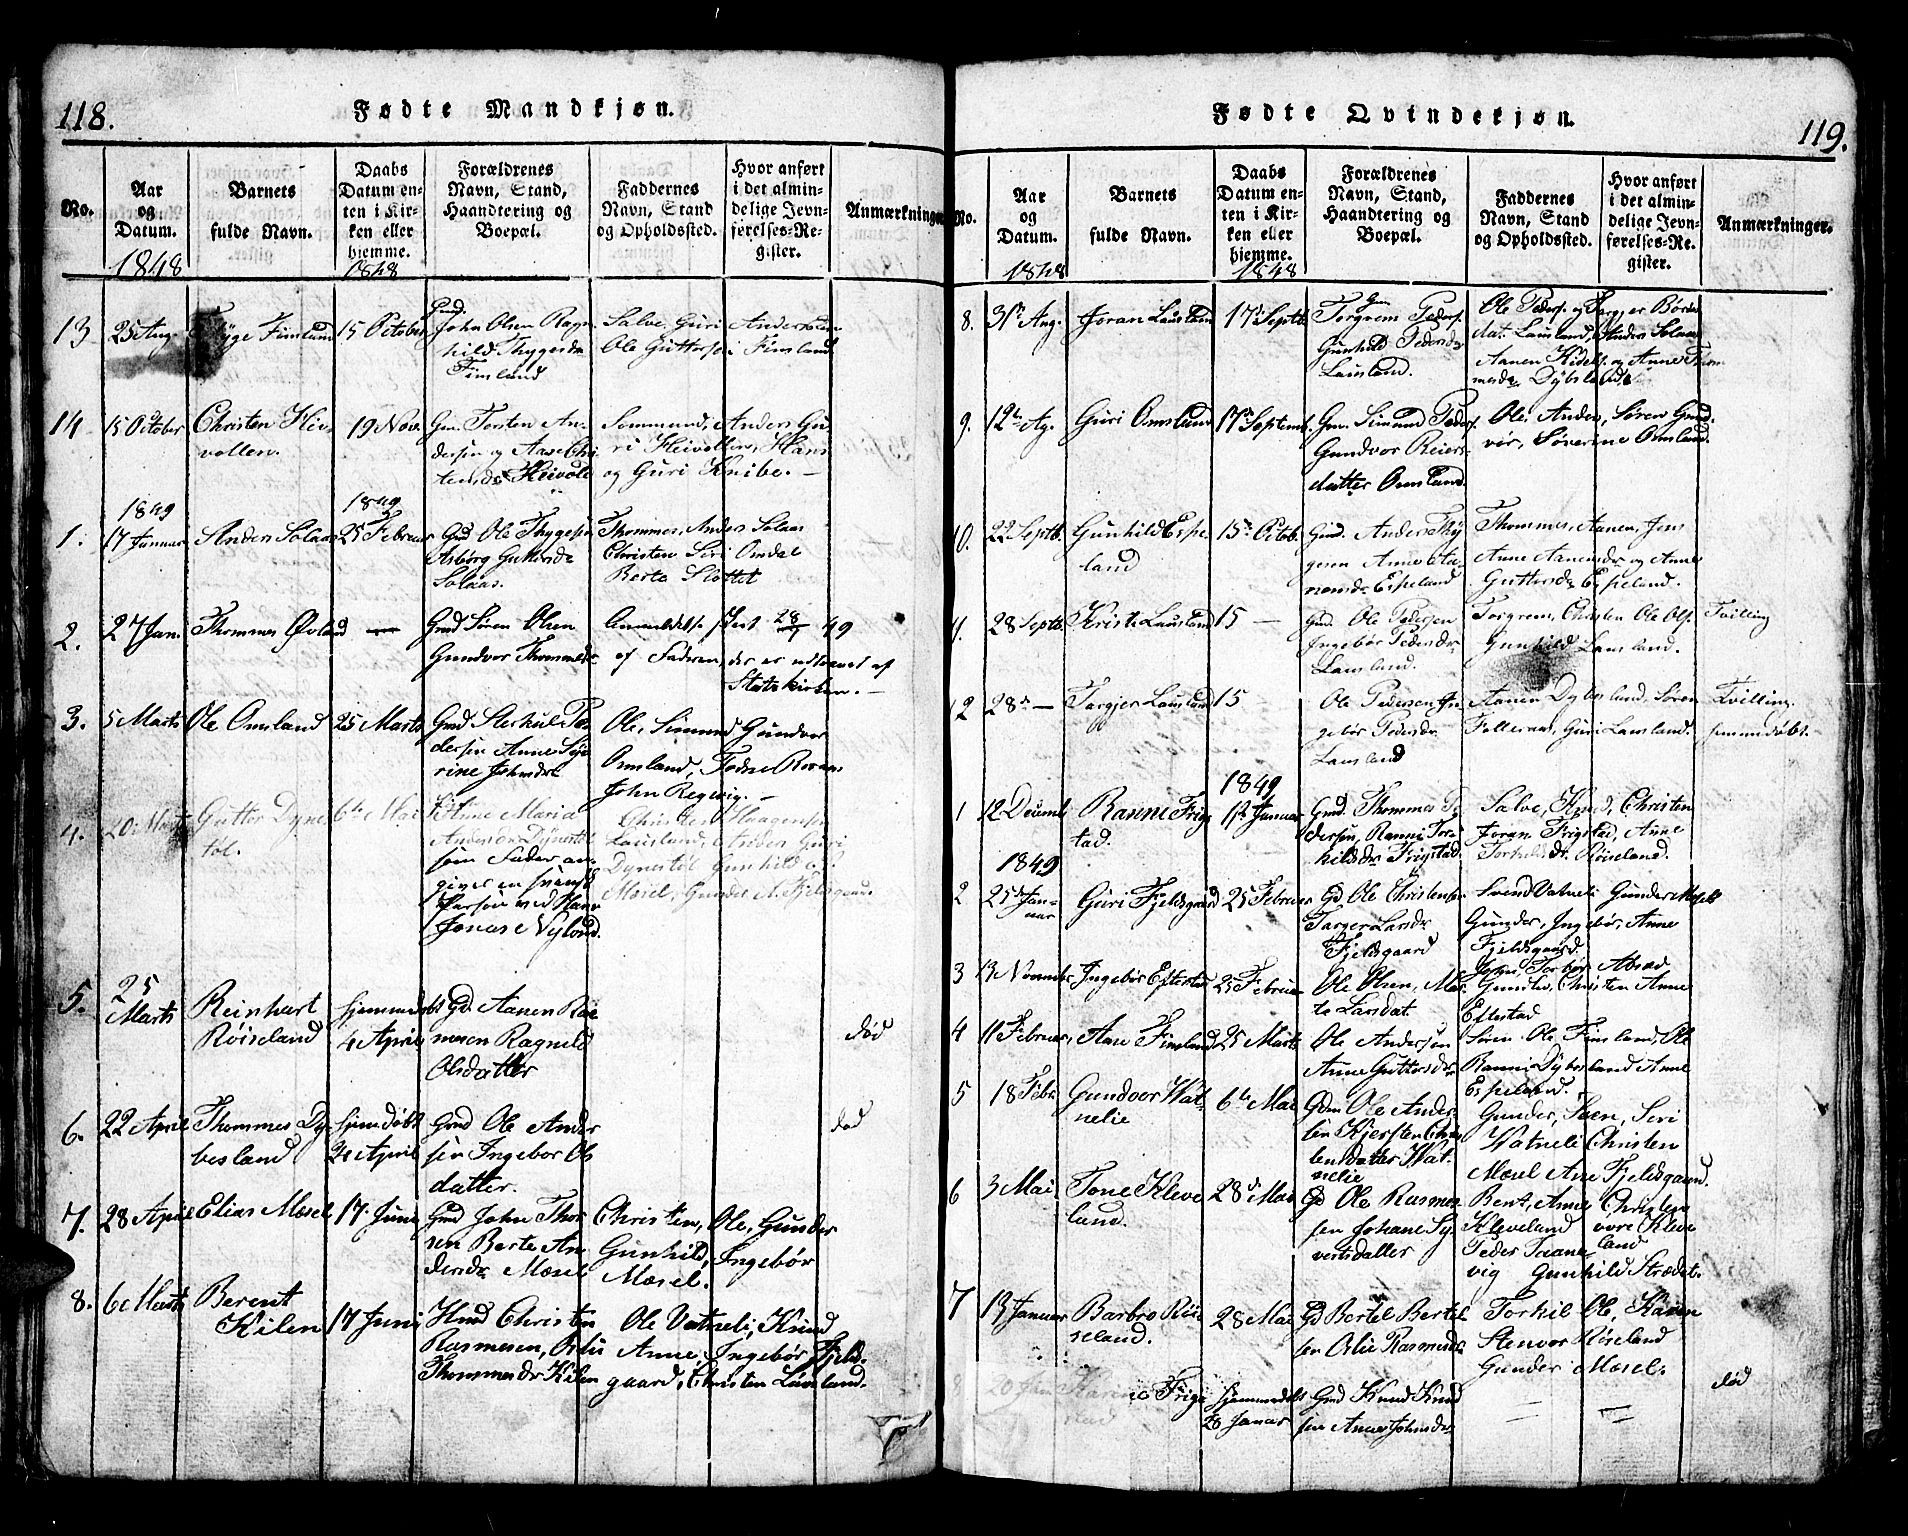 118.
Fødte Mandkjøn.
No.
Aar og Datum.
Barnets fulde Navn.
Daabs Datum enten i Kirken eller hjemme.
Forældrenes Navn, Stand, Haandtering og Boepæl.
Faddernes Navn, Stand og Opholdssted.
Hvor anført i det almindelige Jevnførelses-Register.
Anmærkninger.
1848
1848
13
25 Aug.
Tyge Fimland
15 October
Gmd. John Olsen Ragn
hild Thygesdr
Fimland
Salve, Guri Anders
Ole Guttorps i Fimland
14
15 October
Christen Hei-
vollen.
19 Nov.
Gm. Torsten An-
dersen og Aase Chri
tensdr Heivoll
Sommund, Anders Gu
ri Heivollen, Hans
og Guri Knibe. —
1849
1849
1.
17 Januar
Anders Solaas
25 Februar
Gmd Ole Thygesen
Asbørg Guttorsdr
Solaas.
Thommes, Anders Solaas
Christen Siri Omdal
Berte Slottet
2.
27 Jan.
Thommes Øvland
—
Gmd Søren Olsen
Gundvor Thommesdr
Anmeldelse skeet 28/7 49
af Faderen, der er udtraadt af
Statskirken. —
3.
5 Marts
Ole Omland
25 Marts
Gmd Sterkul Pe
dersen Anne Sy
rine Johnsdr
Ole, Simund Gundvor
Omland, Tedne Roraas
John Regevig. —
4.
20 Marts
Guttor Dyne
tøl.
6te Mai
Anne Maria
Andersdr Dynestøl
som Fader an-
giver en svensk
Person ved Navn
Jonas E Nylund.
Christen Haagensen
Lausland, Anders Guri
Dynestøl Gunhild
Mæsel, Gunder A. Fjeldsgaard.
5.
25
Marts
Reinhart
Røiseland
hjemmedøbt
4 April
Gd Aanen Ras
musen Ragnild
Olsdatter
død
6.
22 April
Thommes Dy-
besland
hjemdøbt
24 April
Gmd Ole Ander
sen Ingebor Ols
datter.
død
7.
28 April
Elias Mæsel
17. Juni
Gmd John Thor
sen Berte An-
dersdr Mæsel
Christen, Ole, Gunder
Gunhild, Ingebør
Mæsel.
8.
6 Marts
Berent
Kilen
17 Juni
Hmd Christen
Rasmesen, Oslu
Thommesdr Kilen
Ole Vatneli, Knud
Anne, Ingebør Fjelds-
gaard, Christen Lausland.
119.
Fødte Qvindekjøn.
No.
Aar og Datum.
Barnets fulde Navn.
Daabs Datum enten i Kirken eller hjemme.
Forældrenes Navn, Stand, Haandtering og Boepæl.
Faddernes Navn, Stand og Opholdssted.
Hvor anført i det almindelige Jevnførelses-Register.
Anmærkninger.
1848
1848
8.
31te Aug.
Joran Lausland
17de Septb.
Gm
Torgrem Peders.
Gunhild Pedersdr
Lausland.
Ole Peders. og Torger Børuf
dat. Lausland, Anders Solaas
Aanen Kidels. og Anne Thom
mesdr Dybesland.
9.
12te Ag.
Guri Omland
17de Septemb.
Gm. Simund Peders.
Gundvor Reiers-
datter Omland.
Ole, Anders, Søren Gund-
vor, Søverine Omland.
10.
22 Septb.
Gunhild Espe-
land
15de Octob.
Gmd. Anders Thy
gesen Anne Aa-
nensdr Espeland
Thommes, Aanen, Jens
Anne Aanensdr og Anne
Guttorsdr Espeland.
11.
28 Septb.
Kristi Lausland
15 —
Gmd Ole Pedersen
Ingebør Pedersdr
Lausland.
Torgrem, Christen Ole Ols.
Gunhild Lausland.
Tvilling
12
28de —
Targjer Lausland
15
Ole Pedersen In
gebør Pedersdr
Lausland
Aanen Dybesland, Søren
Follerraas, Guri Lausland.
Tvilling.
hjemmedøbt. —
1849
1
12 Decemb
Ranni Frig-
stad.
1ste Januar
Gmd Thommes Pe
dersen, Ranni Tor-
kildsdr Frigstad.
Salve, Knud, Christen
Joran Frigstad, Anne
Torkildsdt. Røiseland.
1849
2
25de Jan-
uar
Guri Fjeldsgaard
25 Februar
Gd Ole Christensen
Tarjer Larsdr
Fjeldsgaard
Svend Vatneli Gunder Mæsel
Gunder, Ingebør, Anne
Fjeldsgaard.
3
13 November
Ingebør Eftestad
25 Februar
Ole Olsen, Mar
te Larsdat.
John, Torbør Abrad
Gunder, Christen Anne
Eftestad
4
11 Februar,
Aase Fimland
25 Marts
Ole Andersen
Anne Guttorsdr
Søren Ole, Fimland, Ole
Ranni Dybesland Anne
Espeland.
5
18 Febr.
Gundvor Wat-
nelie
6te Mai
Gdm Ole Ander-
sen Kjersten Chris
tensdatter Wat-
nelie
Gunder, Soen, Siri
Vatneli Christen
Mæsel Ane Fjeldsgaard.
6
3 Mai,
Tone Kleve
land.
28de Mai
Gd Ole Rasmes-
sen Johane Sy-
vertsdatter
Bent, Anne Christen
Kleveland øvre Kleve
land
Peder Taane-
vig Gunhild Strædet.
7
13 Januar
Barbro Røi-
seland.
28 Mai
Gd Bertel Bertel
sen Oslu Rasmesdr
Torkil Ole, Karen
Stenvor Røiseland
Gunder Mæsel.
8
20 Jan
Karine Frig-
stad
hjemmedøbt
20 Januar
Gmd Knud Knud
sen Anne Johnsdr
— —
død